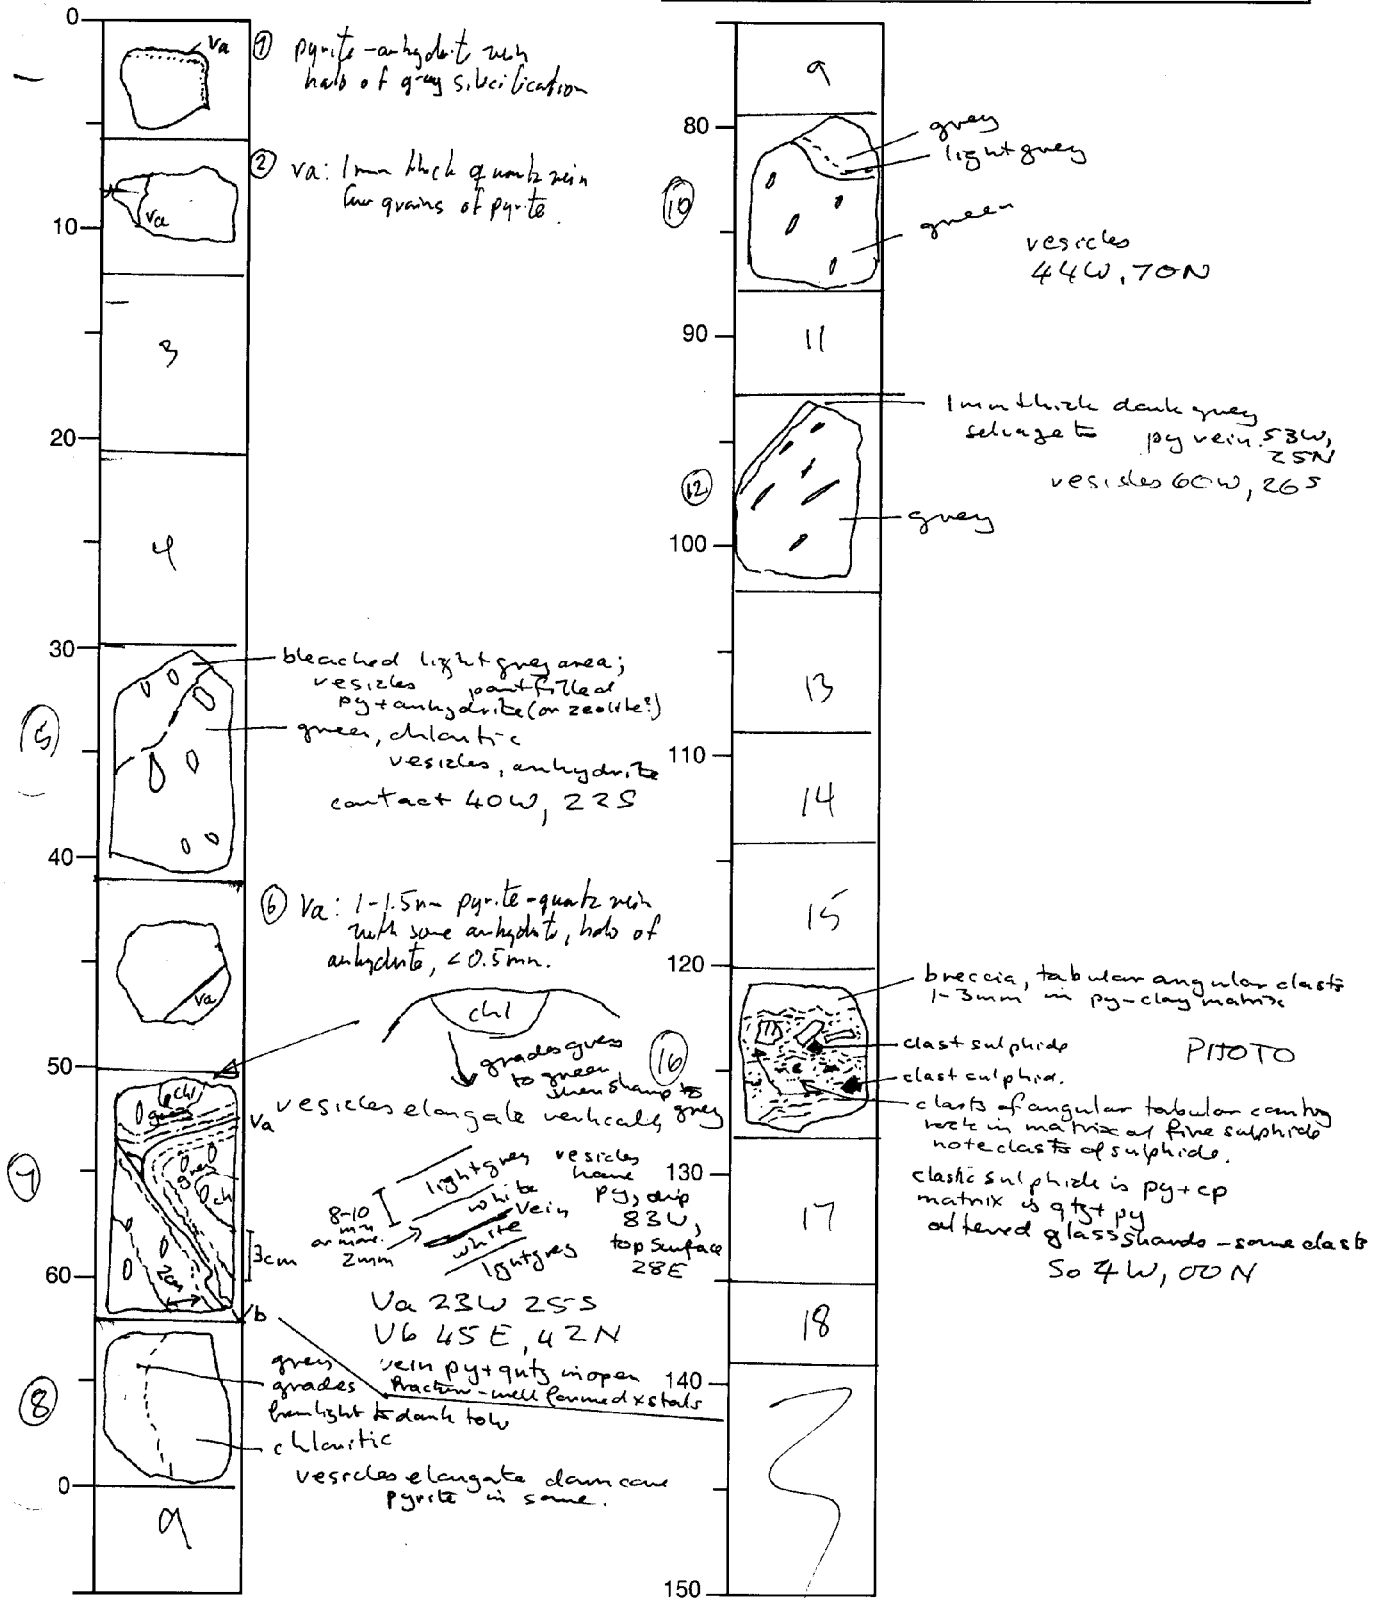 0
Va
① pyrite-anhydrite vein
halo of grey silicification
② va: 1mm thick quartz vein
few grains of pyrite.
va
10
3
20
4
30
⑤
bleached light grey area;
vesicles part filled
py+anhydrite (or zeolite?)
green, chloritic
vesicles, anhydrite
contact 40W, 22S
40
⑥ Va: 1-1.5mm pyrite-quartz vein
with some anhydrite, halo of
anhydrite, <0.5mm.
va
chl
grades grey
to green
then sharp to
grey
50
chl
Va
vesicles elongate vertically
7
ch
3cm
2cm
Vb
light grey
white
vein
white
light grey
8-10
mm
2mm
vesicles
have
py, dip
83W,
top surface
28E
60
Va 23W 25S
Vb 45E, 42N
vein py+qutz in open
fracture - well formed xstals
⑧
grey
grades
from light to dark to
chloritic
vesicles elongate down core
pyrite in some.
0
9
9
80
⑩
grey
light grey
green
vesicles
44W, 70N
90
11
1mm thick dark grey
selvage to py vein 53W,
25N
vesicles 60W, 26S
⑫
grey
100
13
110
14
15
120
breccia, tabular angular clasts
1-3mm in py-clay matrix
⑯
clast sulphide
PHOTO
clast sulphid.
clasts of angular tabular
rock in matrix of fine sulphide
note clasts of sulphide.
clastic sulphide is py+cp
matrix is qtz+py
altered glass shards - some clasts
So 4W, 00N
130
17
18
140
150